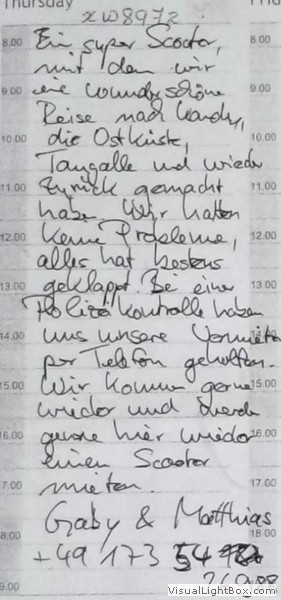 Thursday
xw8972
8.00 Ein super Scooter, 8.00
mit dem wir
9.00 eine wunderschöne 9.00
Reise nach Kandy,
10.00 die Ostküste, 10.00
Tangalle und wieder
11.00 zurück gemacht 11.00
haben. Wir hatten
12.00 keine Probleme, 12.00
alles hat bestens
13.00 geklappt. Bei einer 13.00
Polizeikontrolle haben
14.00 uns unsere Vermieter 14.00
per Telefon geholfen.
15.00 Wir kommen gerne 15.00
wieder und werde
16.00 gerne hier wieder 16.00
einen Scooter
17.00 mieten. 17.00
Gaby & Matthias
8.00 +49 173 54 18.00
9.00
VisualLightBox.com